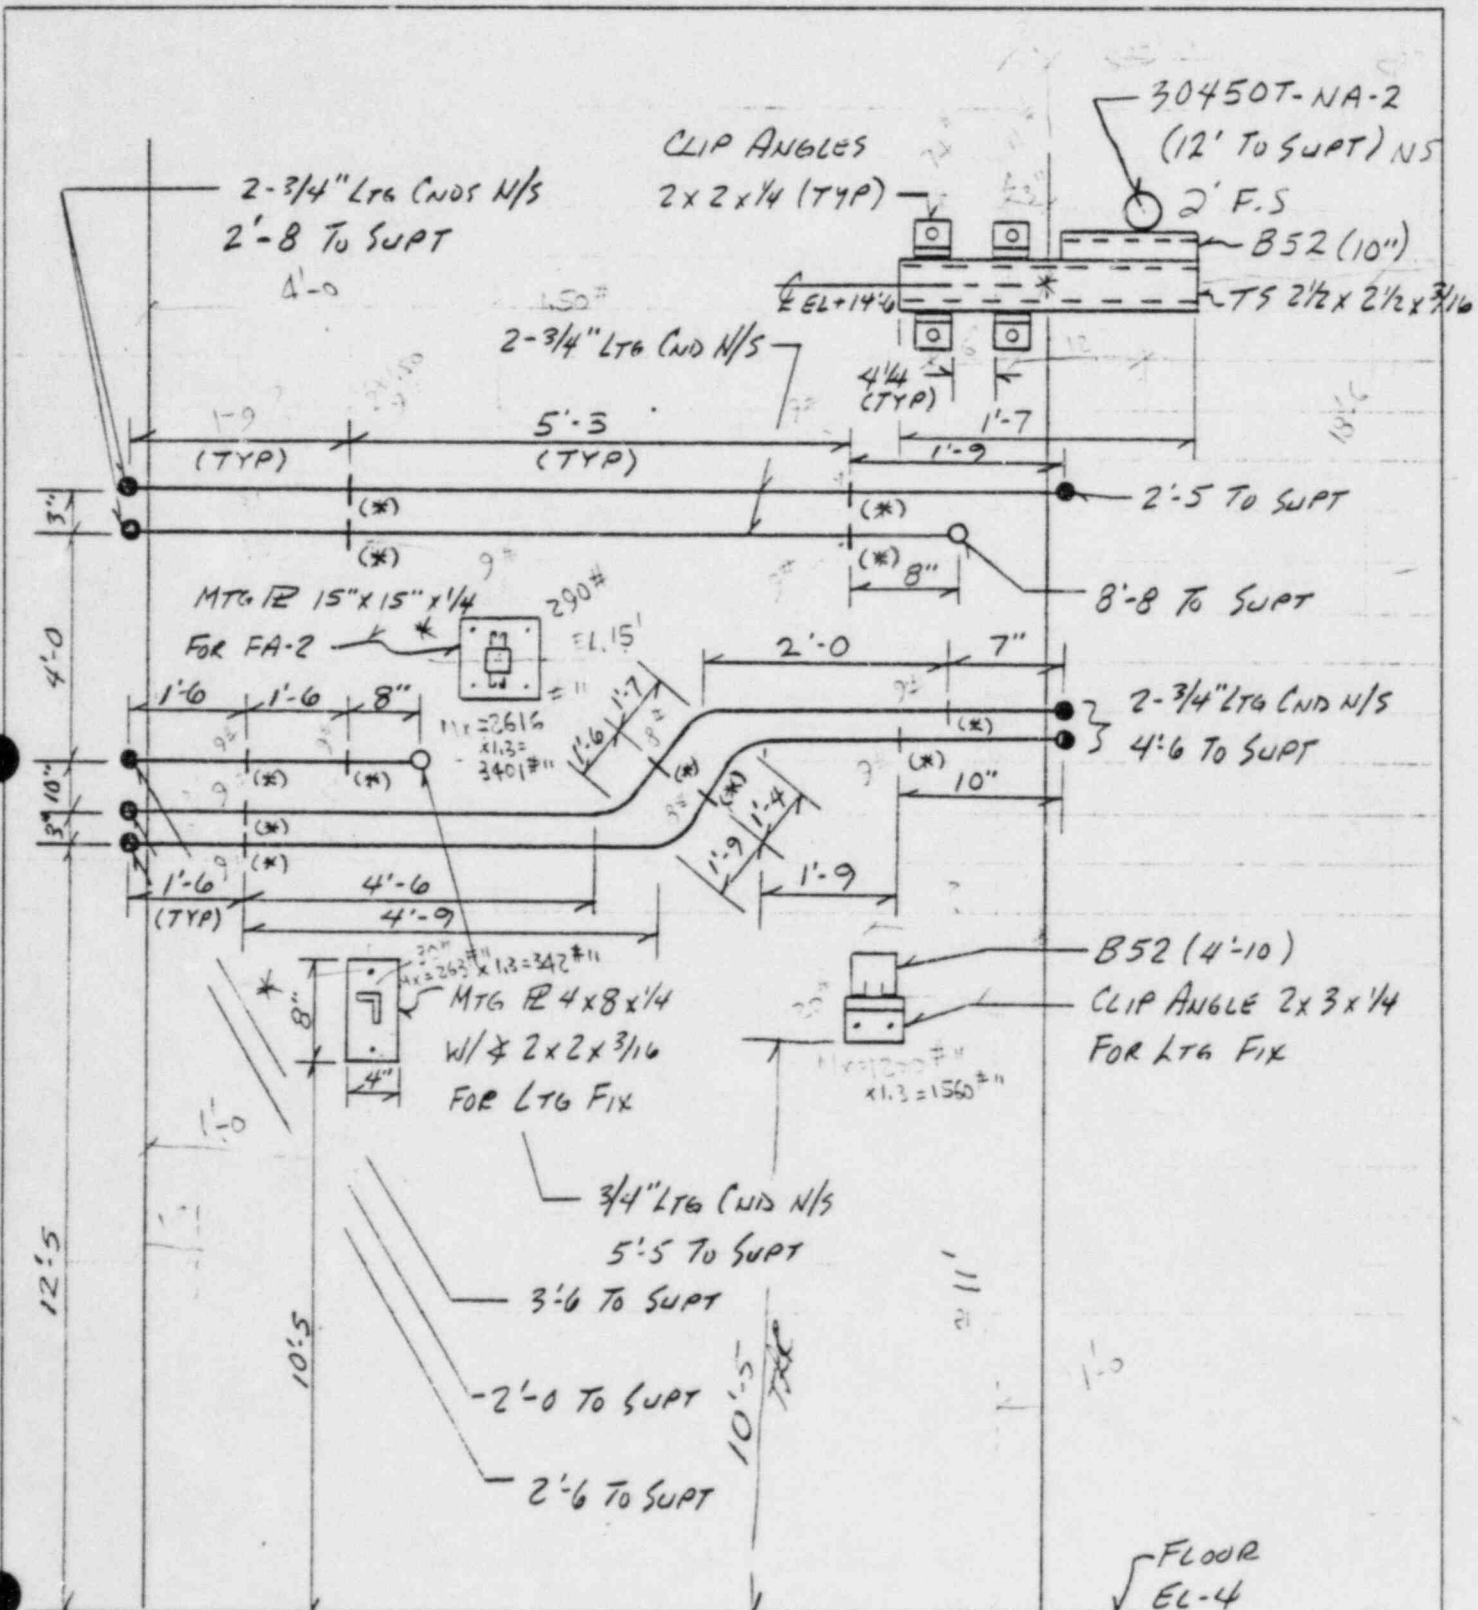 30450T-NA-2
(12' TO SUPT) NS
2' F.S
B52 (10")
TS 2½ x 2½ x 3/16
CLIP ANGLES
2 x 2 x ¼ (TYP)
2-3/4" LTG CNDS N/S
2'-8 TO SUPT
4'-0
150#
℄ EL+14'6
2-3/4" LTG CND N/S
4¼
(TYP)
12
1'-7
1'-9
1-9
(TYP)
5'-3
(TYP)
18'-6
3"
(*)
(*)
2'-5 TO SUPT
(*)
(*)
8"
8'-8 TO SUPT
9#
MTG PL 15" x 15" x 1/4
*
FOR FA-2
290#
EL. 15'
4'-0
2'-0
7"
1'-6
1'-6
8"
1'-7
1'-6
8#
Mx=2615 #"
x1.3=
3401#"
2-3/4" LTG CND N/S
4'-6 TO SUPT
(*)
(*)
(*)
(*)
(*)
(*)
10"
10"
3"
(*)
(*)
1'-4
1'-9
1'-9
1'-6
(TYP)
4'-6
4'-9
30#
Mx=263#" x 1.3=342#"
*
8"
4"
MTG PL 4 x 8 x ¼
W/ ∡ 2 x 2 x 3/16
FOR LTG FIX
B52 (4'-10)
CLIP ANGLE 2 x 3 x ¼
FOR LTG FIX
x1.3=1560#"
1'-0
3/4" LTG CND N/S
5'-5 TO SUPT
3'-6 TO SUPT
2'-0 TO SUPT
2'-6 TO SUPT
12'-5
10'-5
10'-5
11'
1'-0
FLOOR
EL-4